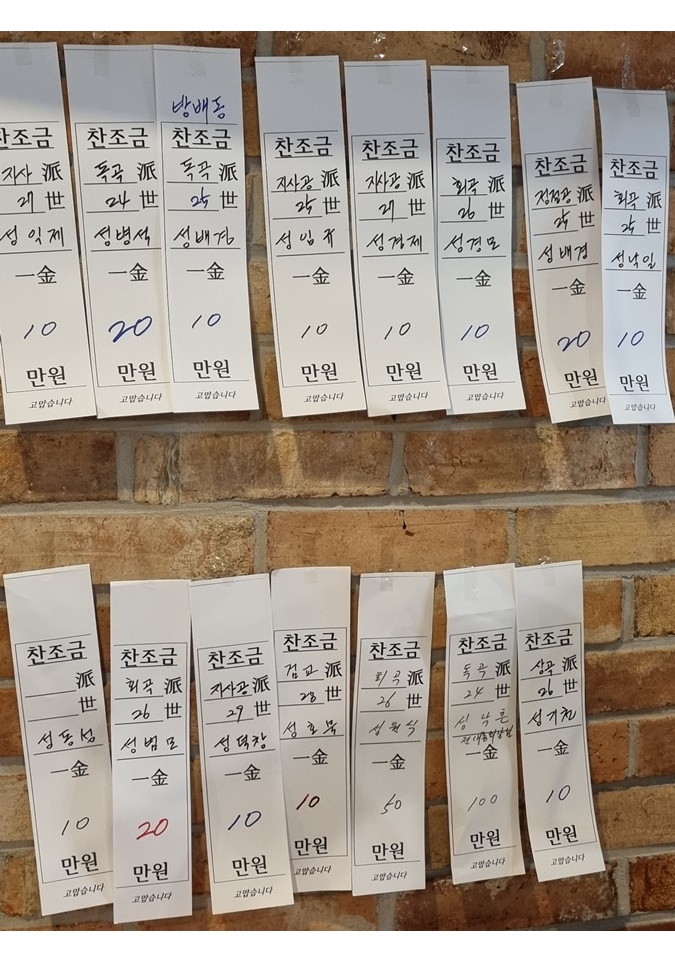 찬조금
지사 派
27 世
성익제
一金
10
만원
찬조금
독곡 派
24 世
성병석
一金
20
만원
고맙습니다
방배동
찬조금
독곡 派
25 世
성배경
一金
10
만원
고맙습니다
찬조금
지사공 派
25 世
성임
一金
10
만원
고맙습니다
찬조금
지사공 派
27 世
성경제
一金
10
만원
고맙습니다
찬조금
회곡 派
26 世
성경모
一金
10
만원
고맙습니다
찬조금
派
25 世
성배경
一金
20
만원
고맙습니다
찬조금
회곡 派
25 世
성낙일
一金
10
만원
고맙습니다
찬조금
派
世
성동섭
一金
10
만원
고맙습니다
찬조금
회곡 派
26 世
성범모
一金
20
만원
고맙습니다
찬조금
지사공 派
29 世
성덕창
一金
10
만원
고맙습니다
찬조금
검교 派
28 世
성호묵
一金
10
만원
고맙습니다
찬조금
회곡 派
26 世
성원식
一金
50
만원
고맙습니다
찬조금
독곡 派
24 世
성낙훈
一金
100
만원
고맙습니다
찬조금
상곡 派
26 世
성기천
一金
10
만원
고맙습니다